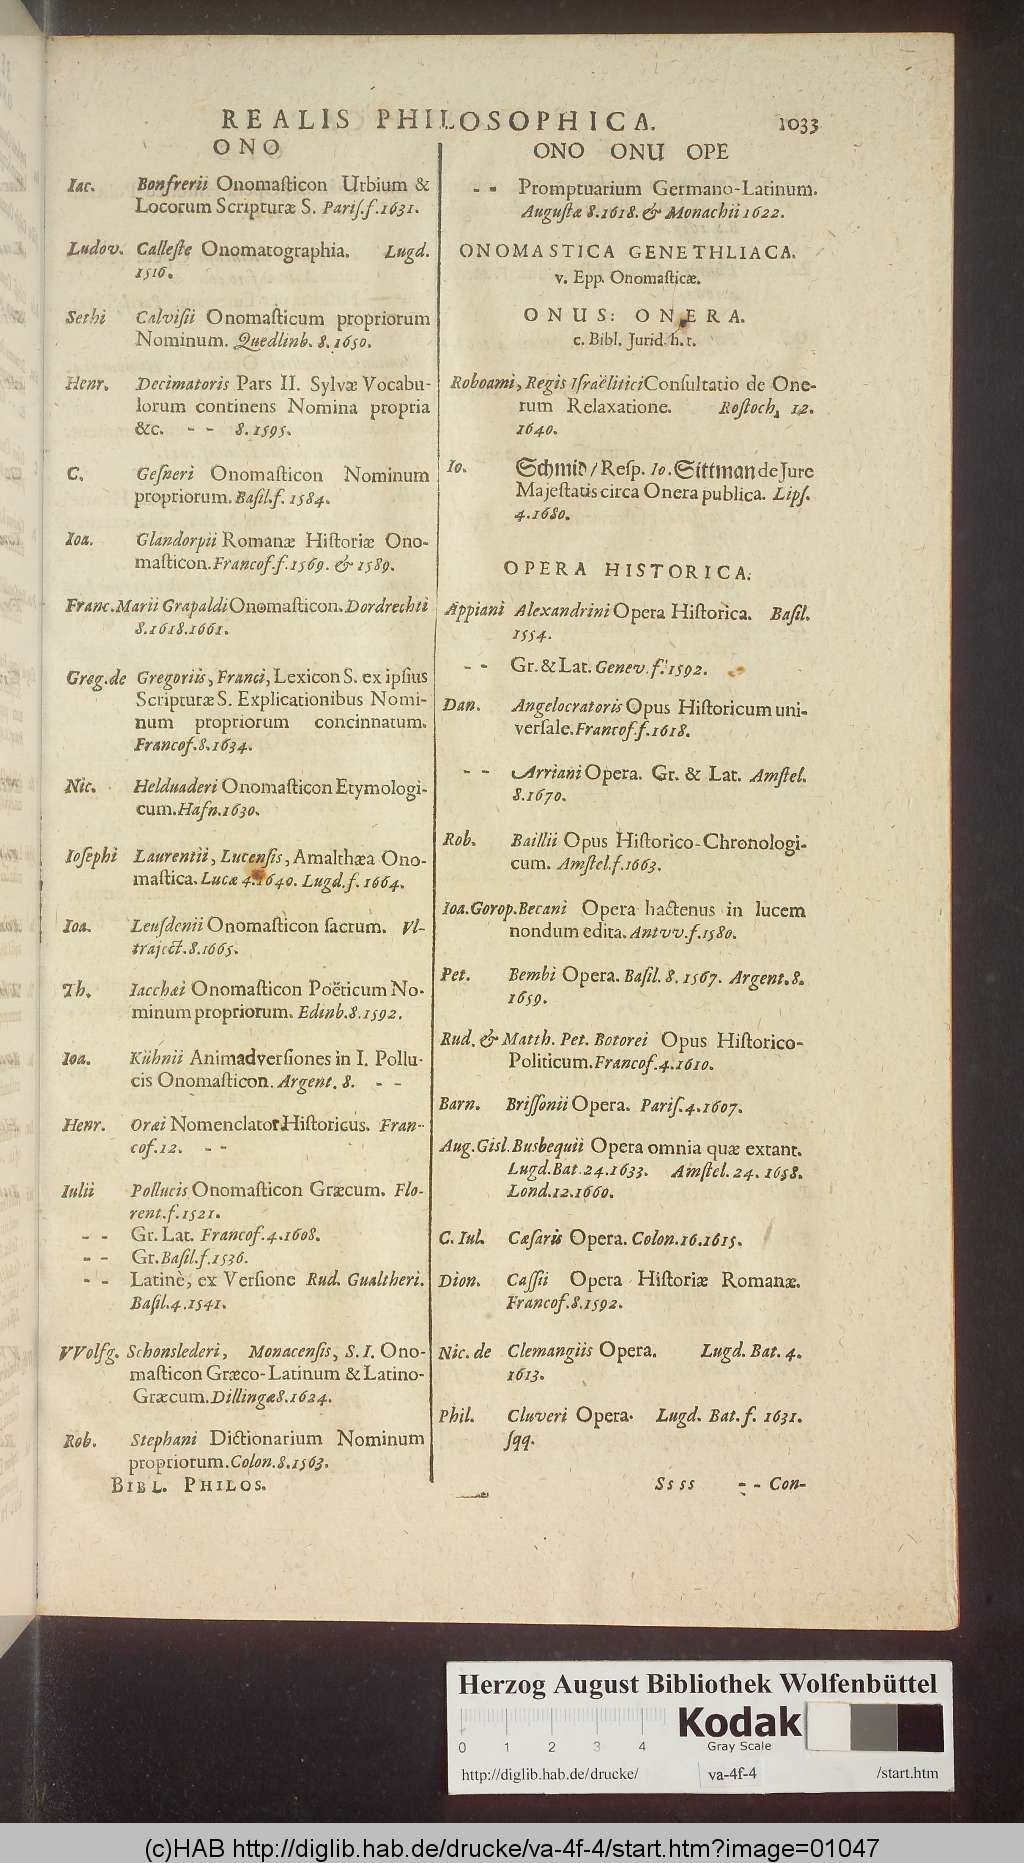 REALIS PHILOSOPHICA. 1033
ONO
Iac. Bonfrerii Onomaſticon Urbium &
Locorum Scripturæ S. Pariſ.f.1631.
Ludov. Calleſte Onomatographia. Lugd.
1516.
Sethi Calviſii Onomaſticum propriorum
Nominum. Quedlinb. 8.1650.
Henr. Decimatoris Pars II. Sylvæ Vocabu-
lorum continens Nomina propria
&c. - - 8.1595.
C. Geſneri Onomaſticon Nominum
propriorum. Baſil.f. 1584.
Ioa. Glandorpii Romanæ Hiſtoriæ Ono-
maſticon. Francof.f.1569. & 1589.
Franc. Marii Grapaldi Onomaſticon. Dordrechti
8.1618.1661.
Greg. de Gregoriis, Franci, Lexicon S. ex ipſius
Scripturæ S. Explicationibus Nomi-
num propriorum concinnatum.
Francof.8.1634.
Nic. Helduaderi Onomaſticon Etymologi-
cum. Hafn.1630.
Ioſephi Laurentii, Lucenſis, Amalthæa Ono-
maſtica. Lucæ 4.1640. Lugd.f. 1664.
Ioa. Leuſdenii Onomaſticon ſacrum. Vl-
traject.8.1665.
Th. Iacchæi Onomaſticon Poëticum No-
minum propriorum. Edinb.8.1592.
Ioa. Kühnii Animadverſiones in I. Pollu-
cis Onomaſticon. Argent. 8. - -
Henr. Oræi Nomenclator Hiſtoricus. Fran-
cof.12. - -
Iulii Pollucis Onomaſticon Græcum. Flo-
rent.f.1521.
- - Gr. Lat. Francof.4.1608.
- - Gr. Baſil.f.1536.
- - Latinè, ex Verſione Rud. Gualtheri.
Baſil.4.1541.
VVolfg. Schonslederi, Monacenſis, S.I. Ono-
maſticon Græco-Latinum & Latino-
Græcum. Dillingæ 8.1624.
Rob. Stephani Dictionarium Nominum
propriorum. Colon.8.1563.
BIBL. PHILOS.
ONO ONU OPE
- - Promptuarium Germano-Latinum.
Auguſtæ 8.1618. & Monachii 1622.
ONOMASTICA GENETHLIACA.
v. Epp. Onomaſticæ.
ONUS: ONERA.
c. Bibl. Jurid. h.t.
Roboami, Regis Iſraëlitici Conſultatio de One-
rum Relaxatione. Roſtoch. 12.
1640.
Io. Schmid / Reſp. Io. Sittman de Jure
Majeſtatis circa Onera publica. Lipſ.
4.1680.
OPERA HISTORICA.
Appiani Alexandrini Opera Hiſtorica. Baſil.
1554.
- - Gr. & Lat. Genev.f.1592.
Dan. Angelocratoris Opus Hiſtoricum uni-
verſale. Francof.f.1618.
- - Arriani Opera. Gr. & Lat. Amſtel.
8.1670.
Rob. Baillii Opus Hiſtorico-Chronologi-
cum. Amſtel.f.1663.
Ioa. Gorop. Becani Opera hactenus in lucem
nondum edita. Antvv.f.1580.
Pet. Bembi Opera. Baſil. 8. 1567. Argent.8.
1659.
Rud. & Matth. Pet. Botorei Opus Hiſtorico-
Politicum. Francof.4.1610.
Barn. Briſſonii Opera. Pariſ.4.1607.
Aug. Gisl. Busbequii Opera omnia quæ extant.
Lugd. Bat.24.1633. Amſtel.24. 1658.
Lond.12.1660.
C. Iul. Cæſaris Opera. Colon.16.1615.
Dion. Caſſii Opera Hiſtoriæ Romanæ.
Francof.8.1592.
Nic. de Clemangiis Opera. Lugd. Bat. 4.
1613.
Phil. Cluveri Opera. Lugd. Bat.f. 1631.
ſqq.
Ss ss - - Con-
Herzog August Bibliothek Wolfenbüttel
Kodak
0 1 2 3 4 Gray Scale
http://diglib.hab.de/drucke/ va-4f-4 /start.htm
(c)HAB http://diglib.hab.de/drucke/va-4f-4/start.htm?image=01047